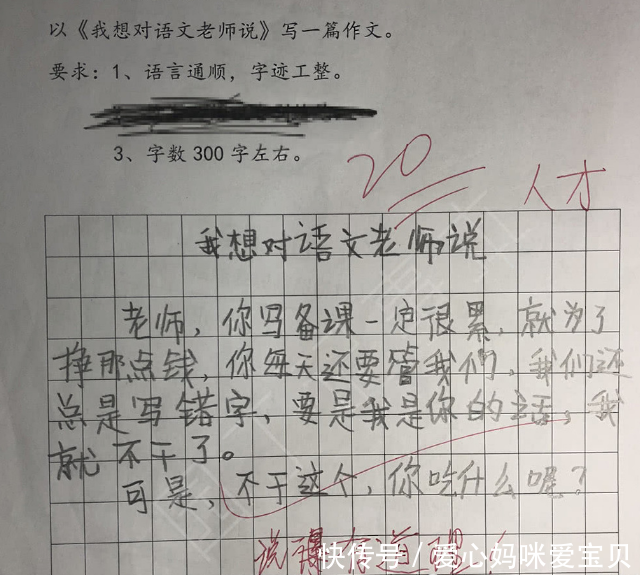 以《我想对语文老师说》写一篇作文。
要求：1、语言通顺，字迹工整。
3、字数 300 字左右。
20
人才
我想对语文老师说
老师，你写备课一定很累，就为了
挣那点钱，你每天还要管我们，我们还
总是写错字，要是我是你的话，我
就不干了。
可是，不干这个，你吃什么呢？
说得有道理！
快传号／爱心妈咪爱宝贝